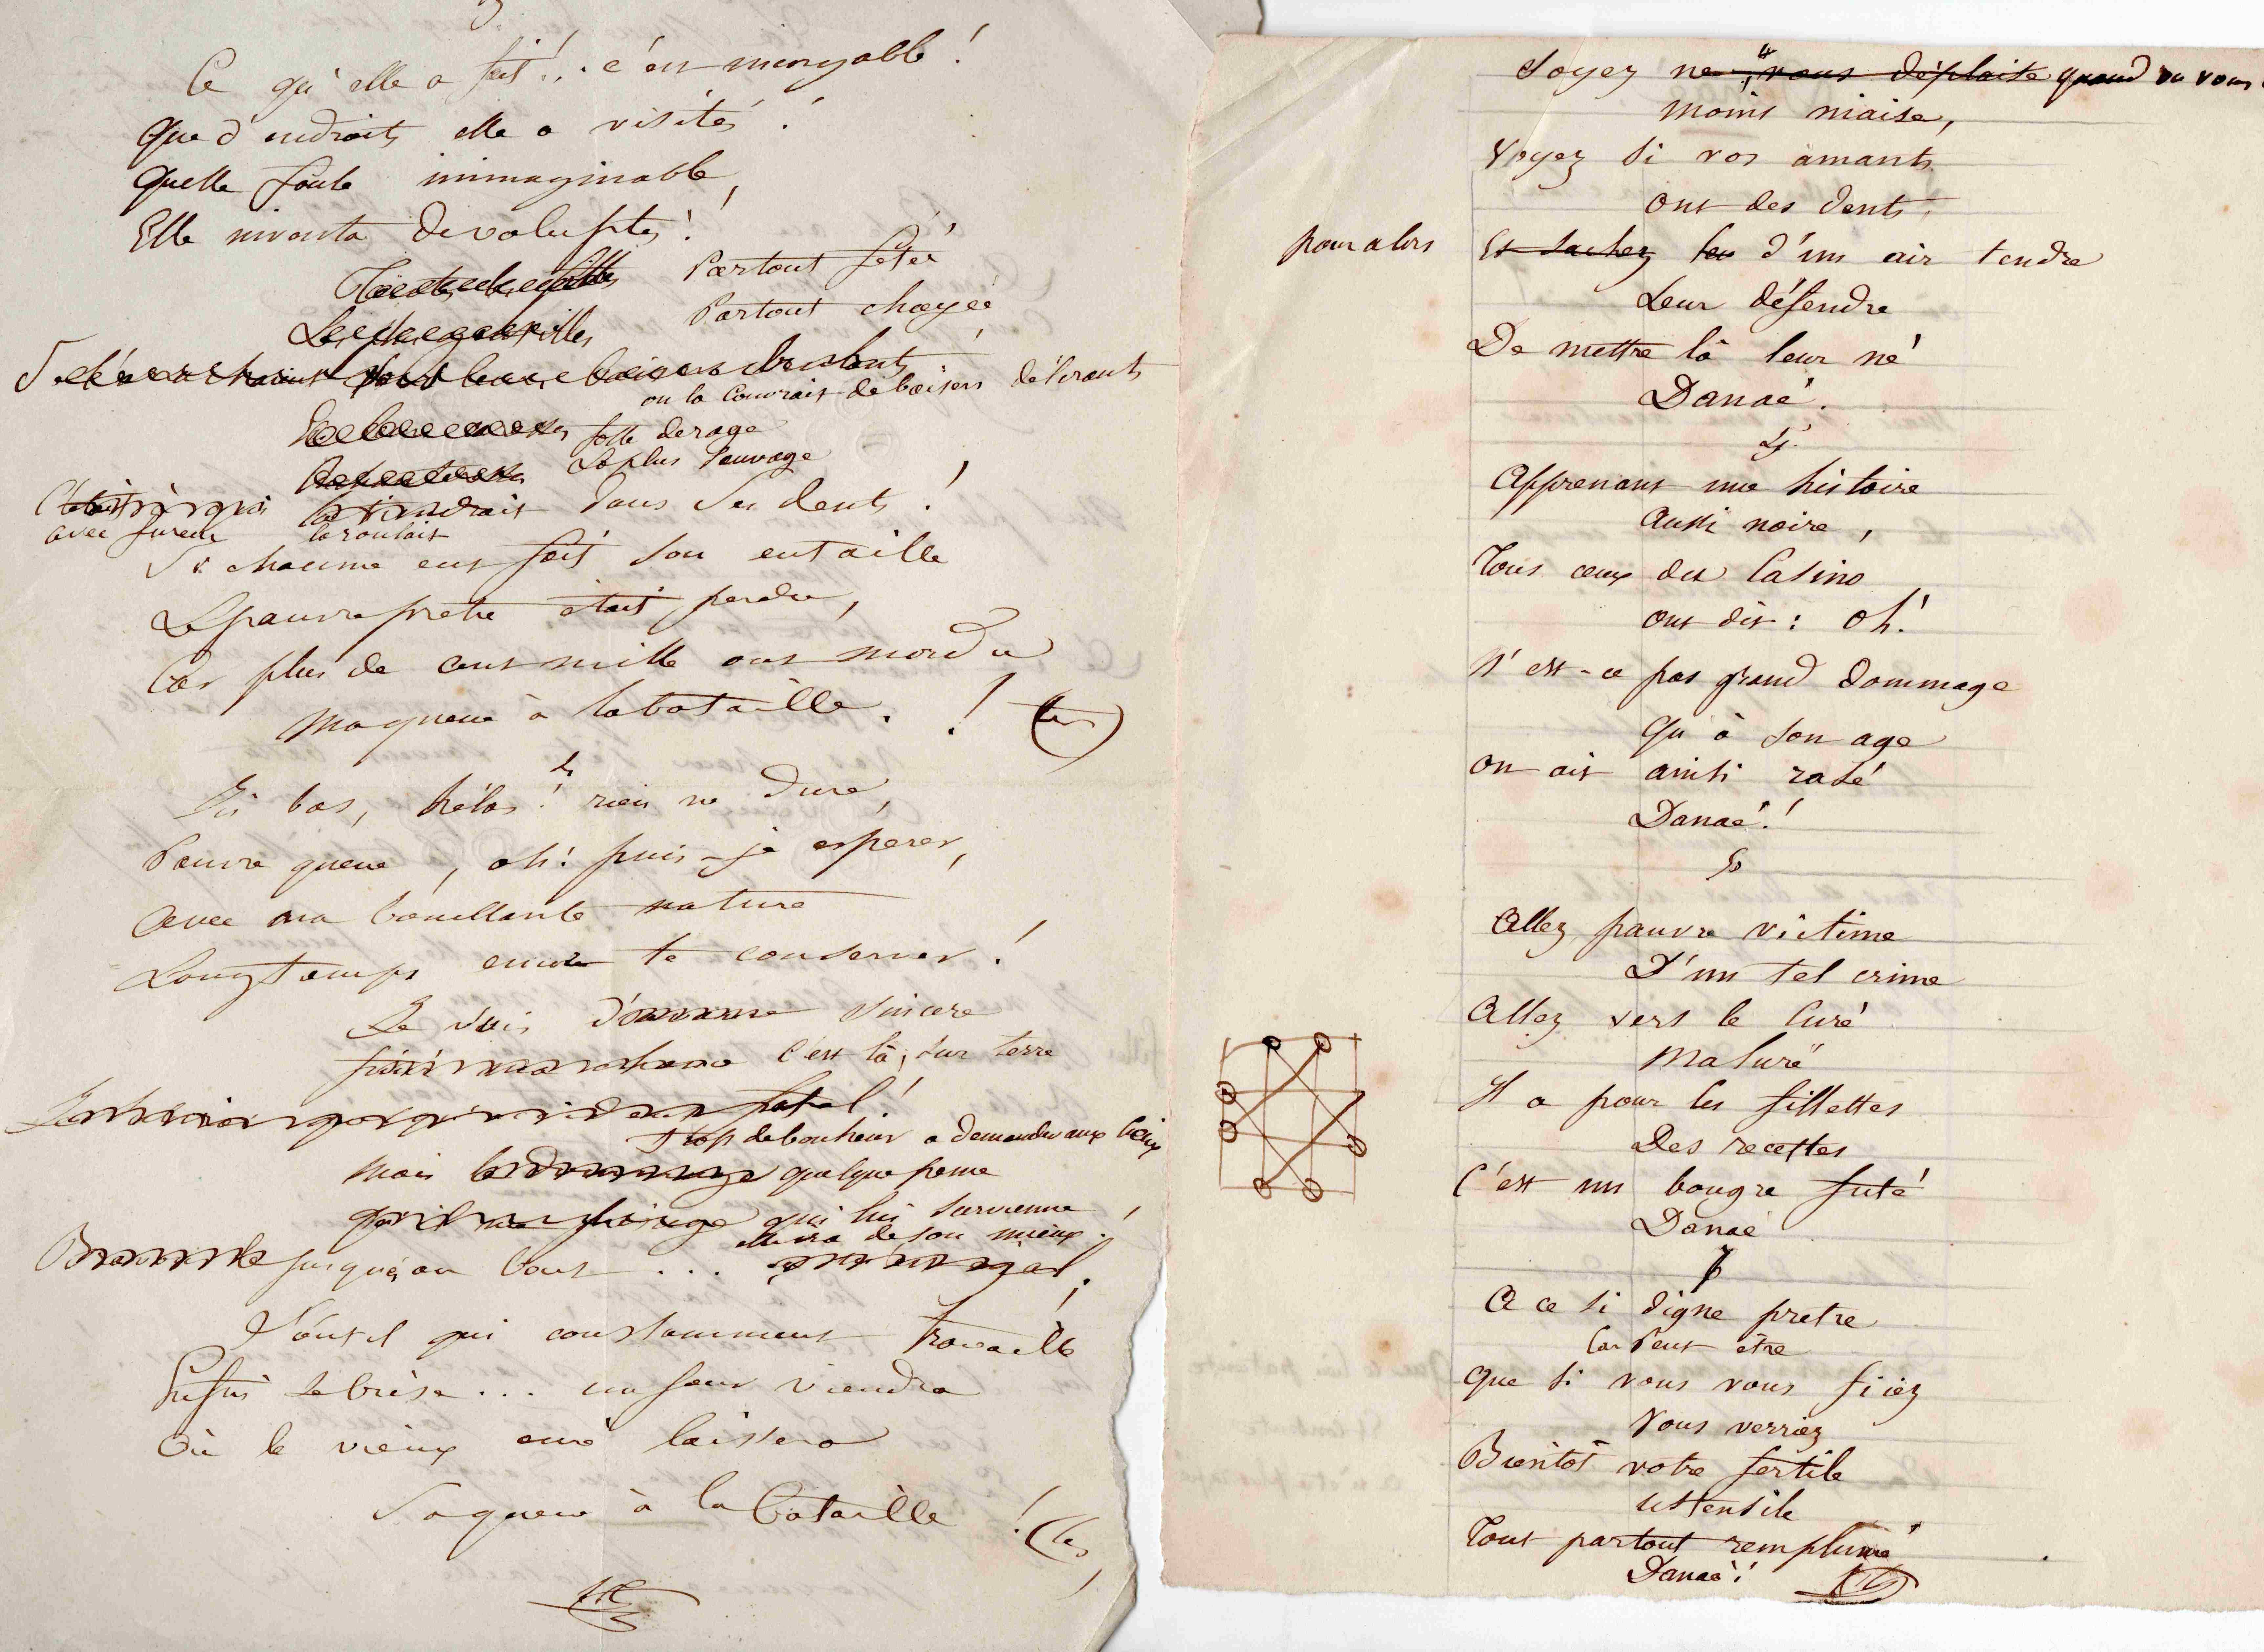 3
Ce qu'elle a fait!.. c'est incroyable!
Que d'endroits elle a visités!
Quelle foule inimaginable,
Elle inventa de voluptés!
Partout fêtée
Partout choyée
on la couvrait de baisers délirants
folle de rage
La plus sauvage
C'était à qui la tiendrait dans ses dents!
avec fureur la roulait
Si chacune eut fait son entaille
Le pauvre pretre était perdu,
Car plus de cent mille ont mordu
Ma queue à la bataille. ! (ter)
4
Ici bas, hélas! rien ne dure,
Pauvre queue, oh! puis-je espérer,
Avec ma bouillante nature
Longtemps encore te conserver!
Je suis sincere
C'est là, sur terre
fatal!
Trop de bonheur a demander aux Cieux
Mais quelque peine
qui lui survienne
elle ira de son mieux!
jusqu'au bout ...
L'outil qui constamment travaille
Enfin se brise... un jour viendra
Où le vieux curé laissera
Sa queue à la bataille! (ter)
Soyez ne vous déplaise quand on vous
moins niaise,
Voyez si vos amants
Ont des dents,
pour alors Et sachez d'un air tendre
Leur défendre
De mettre là leur né
Danaé.
4
Apprenant une histoire
Aussi noire,
Tous ceux du Casino
Ont dit: Oh!
N'est-ce pas grand dommage
Qu'à son age
On ait ainsi rasé
Danaé!
5
Allez pauvre victime
D'un tel crime
Allez vers le Curé
Maturé
Il a pour les fillettes
Des recettes
C'est un bougre futé
Danaé
6
A ce si digne pretre
Car Peut être
Que si vous vous fiiez
Vous verriez
Bientôt votre fertile
Ustensile
Tout partout remplumé
Danaé!